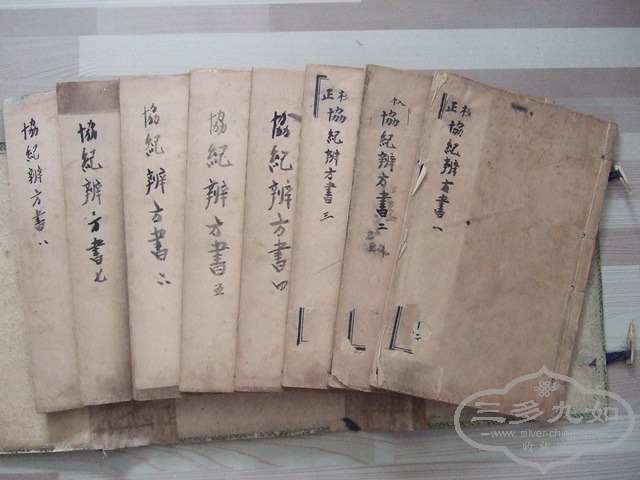 校正協紀辨方書一
協紀辨方書二
校正協紀辨方書三
協紀辨方書四
協紀辨方書五
協紀辨方書六
協紀辨方書七
協紀辨方書八
三多九如